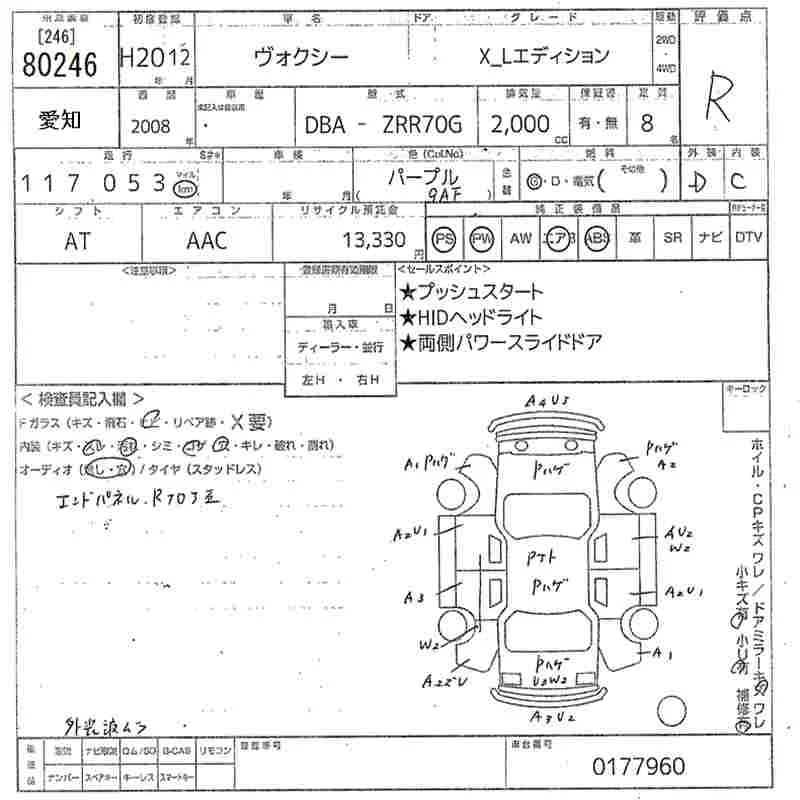 出品番号 初度登録 車名 ドア グレード 駆動 評価点
[246]
80246 H20 12 ヴォクシー X_Lエディション 2WD ・ 4WD R
年 月
愛知 西暦 車歴 型式 排気量 保証書 定員
2008 年 ・ DBA - ZRR70G 2,000 cc 有・無 8 名
走行 車検 色(Col.No) 燃料 外装 内装
117 053 マイル km 年 月 パープル 9AF 色替 G・D・電気( その他 ) D C
シフト エアコン リサイクル預託金 純正装備品
AT AAC 13,330 円 PS PW AW エアB ABS 革 SR ナビ DTV
<注意事項> 登録書類有効期限 <セールスポイント>
月 日
★プッシュスタート
★HIDヘッドライト
★両側パワースライドドア
輸入車
ディーラー・並行
左H ・ 右H
<検査員記入欄> キーロック
Fガラス(キズ・飛石・ヒビ・リペア跡・X要)
内装(キズ・スレ・汚れ・シミ・コゲ・穴・キレ・破れ・割れ)
オーディオ(無し・穴)/タイヤ(スタッドレス)
エンドパネル.
A4U3
A1 Pハゲ Pハゲ Pハゲ A2
A2U1 AU2 W2
Pケト
A3 Pハゲ A2U1
W2 A1
Pハゲ
U2W2
A3U2
ホイル・CPキズワレ/ドアミラーキズワレ
小キズ有 小U有 補修有
外装波ムラ
後送品 取説 ナビ取説 ロム/SD B-CAS リモコン 登録番号 車台番号
ナンバー スペアキー キーレス スマートキー 0177960